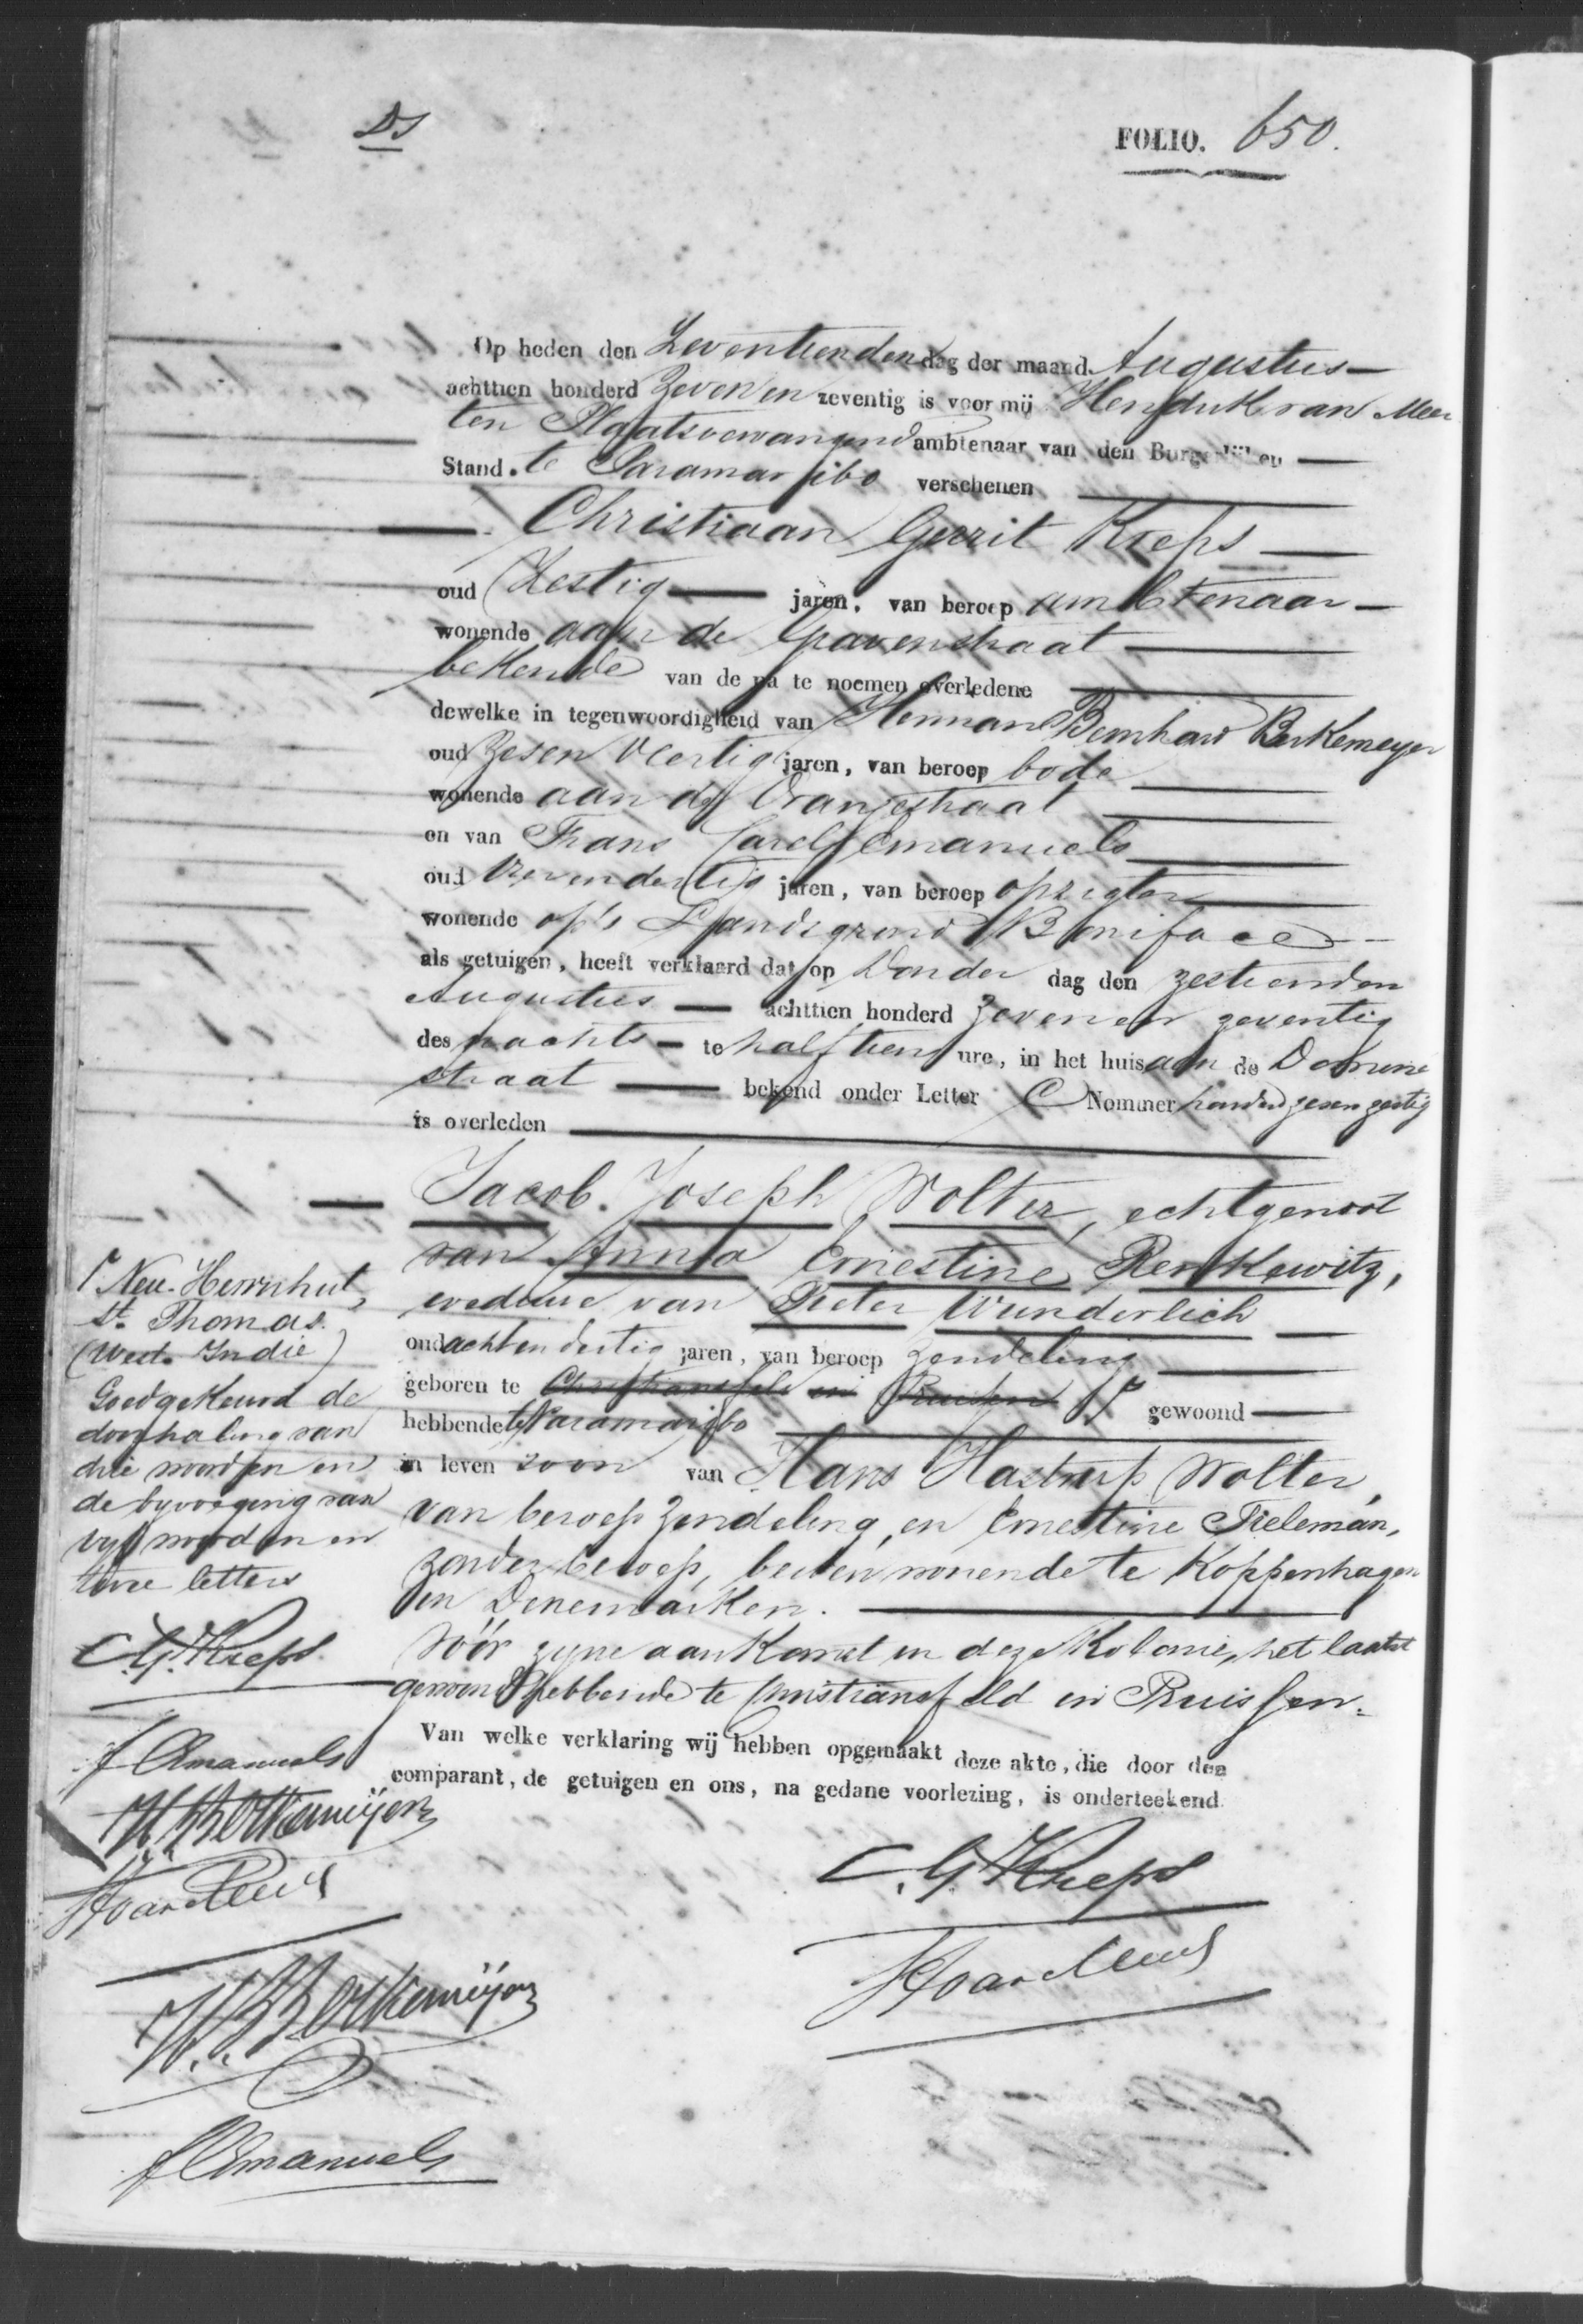 DS
FOLIO. 650.
Op heden den Zeventienden dag der maand Augustus
achttien honderd Zeven en zeventig is voor mij Hendrik van Meer
ten Plaatsvervangend ambtenaar van den Burgerlijken
Stand te Paramaribo verschenen
Christiaan Gerrit Kreps
oud Zestig jaren, van beroep ambtenaar
wonende aan de Gravenstraat
bekende van de na te noemen overledene
dewelke in tegenwoordigheid van Herman Bernhard Berkemeyer
oud Zesen Veertig jaren, van beroep bode
wonende aan de Oranjestraat
en van Frans Carel Emanuels
oud jaren, van beroep opzigter
wonende op 's Landsgrond Boniface
als getuigen, heeft verklaard dat op Donder dag den zestienden
Augustus achttien honderd zeven en zeventig
des nachts te half tien ure, in het huis aan de Domine
straat bekend onder Letter C Nommer honderd zesenzestig
is overleden
Jacob Joseph Wolter, echtgenoot
van Anna Ernestine Renkewitz,
weduwe van Pieter Wunderlich
oud achtendertig jaren, van beroep zendeling
geboren te Christiansfeld in Pruisen gewoond
hebbende te Paramaribo
in leven zoon van Hans Hastrup Wolter,
van beroep zendeling, en Ernestine Tieleman,
zonder beroep, beiden wonende te Koppenhagen
in Denemarken.
Vóór zijne aankomst in deze Kolonie, het laatst
gewoond hebbende te Christiansfeld in Pruissen.
Van welke verklaring wij hebben opgemaakt deze akte, die door den
comparant, de getuigen en ons, na gedane voorlezing, is onderteekend.
Neu-Herrnhut,
St. Thomas.
(West-Indie)
Goedgekeurd de
doorhaling van
drie woorden en
de byvoeging van
vyf woorden en
twee letters
C.G. Kreps
F Emanuels
H.B. Berkemeijer
HvanMeurs
H.B. Berkemeijer
F Emanuels
C.G. Kreps